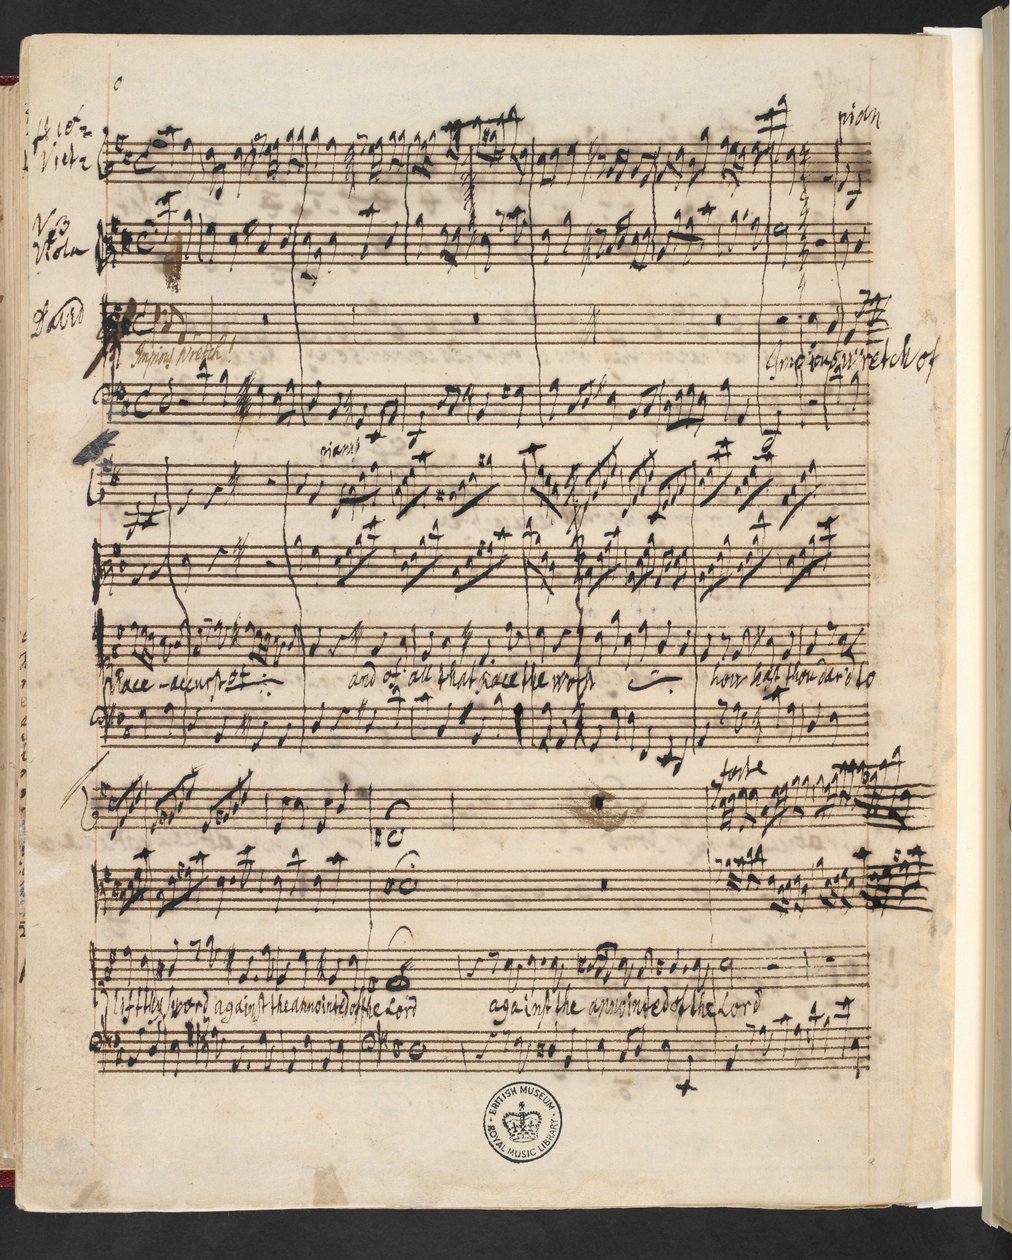 pian
V 3
Viola
David
Impious Wretch
Impious wretch of
piano
Race accurst of
and of all that Race the worst
how hast thou dar'd to
forte
lift thy sword against the annointed of the Lord
against the annointed of the Lord
BRITISH MUSEUM
ROYAL MUSIC LIBRARY